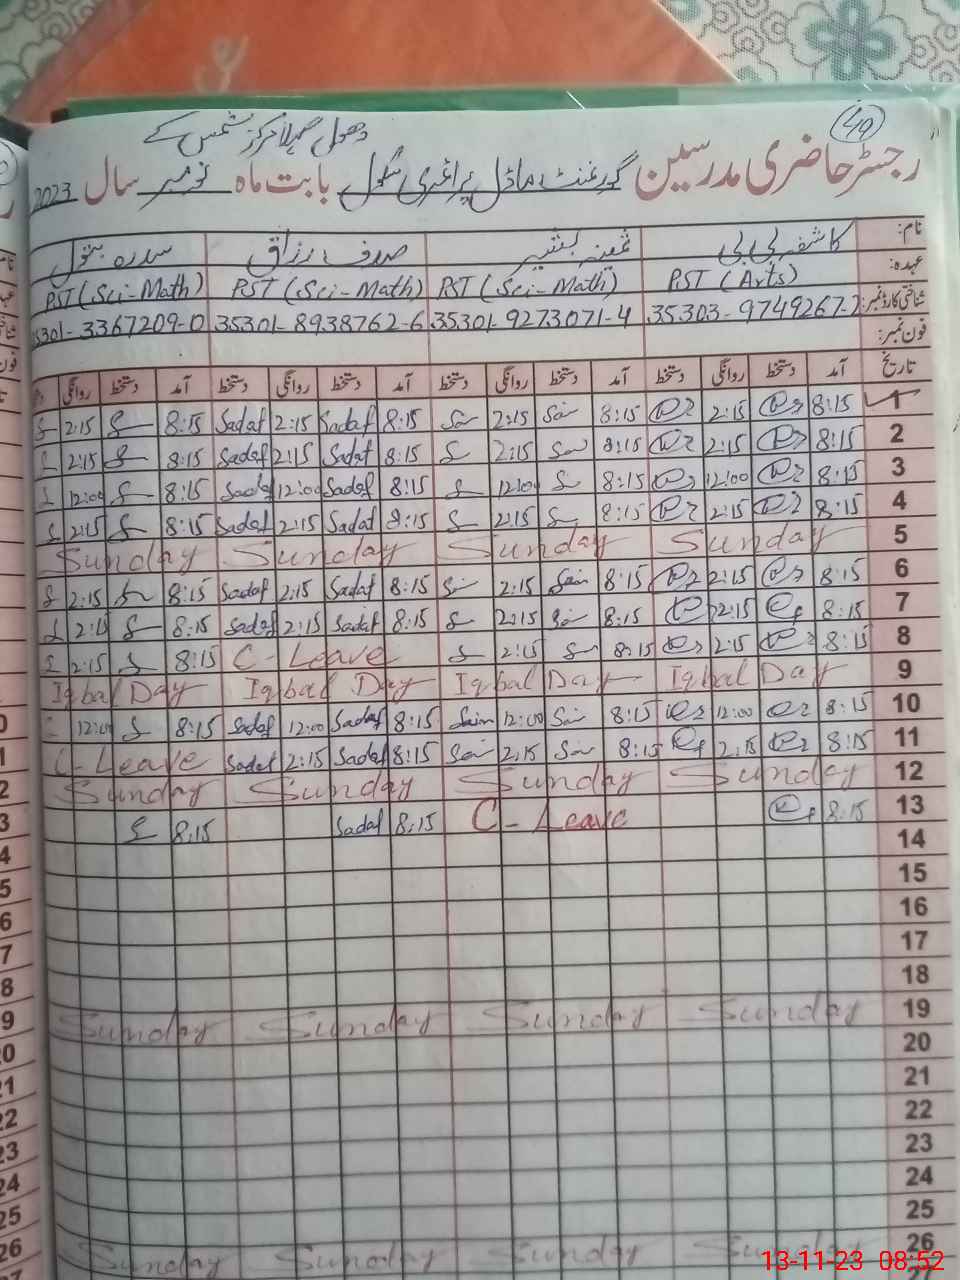 40
دھول گہلا مرکز شمس کے
رجسٹر حاضری مدرسین گورنمنٹ ماڈل پرائمری سکول بابت ماہ نومبر سال 2023
نام: کاشفہ بی بی صدف رزاق سدرہ بتول
عہدہ: PST (Arts) PST (Sci-Math) PST (Sci-Math) PST (Sci-Math)
شناختی کارڈ نمبر: 35303-9749267- 35301-9273071-4 35301-8938762-6 35301-3367209-0
فون نمبر:
تاریخ آمد دستخط روانگی دستخط آمد دستخط روانگی دستخط آمد دستخط روانگی دستخط آمد دستخط روانگی
1 8:15 2:15 8:15 2:15 8:15 Sadaf 2:15 Sadaf 8:15 2:15
2 8:15 2:15 8:15 2:15 8:15 Sadaf 2:15 Sadaf 8:15 2:15
3 8:15 12:00 8:15 12:00 8:15 Sadaf 12:00 Sadaf 8:15 12:00
4 8:15 2:15 8:15 2:15 8:15 Sadaf 2:15 Sadaf 8:15 2:15
5 Sunday Sunday Sunday Sunday
6 8:15 2:15 8:15 2:15 8:15 Sadaf 2:15 Sadaf 8:15 2:15
7 8:15 2:15 8:15 2:15 8:15 Sadaf 2:15 Sadaf 8:15 2:15
8 8:15 2:15 8:15 2:15 C-Leave 8:15 2:15
9 Iqbal Day Iqbal Day Iqbal Day Iqbal Day
10 8:15 12:00 8:15 12:00 8:15 Sadaf 12:00 Sadaf 8:15 12:00
11 8:15 2:15 8:15 2:15 8:15 Sadaf 2:15 Sadaf C-Leave
12 Sunday Sunday Sunday Sunday
13 8:15 C-Leave 8:15 Sadaf 8:15
14
15
16
17
18
19 Sunday Sunday Sunday Sunday
20
21
22
23
24
25
26 Sunday Sunday Sunday Sunday
13-11-23 08:52